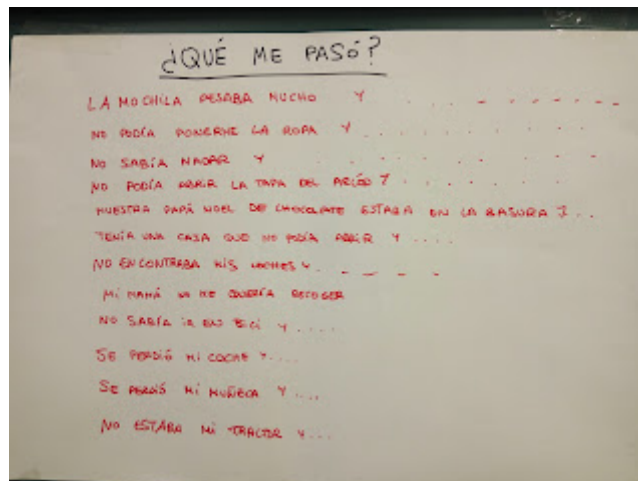 ¿QUÉ ME PASÓ?
LA MOCHILA PESABA MUCHO Y . . . . . . . . .
NO PODÍA PONERME LA ROPA Y . . . . . . . .
NO SABÍA NADAR Y . . . . . . . .
NO PODÍA ABRIR LA TAPA DEL Y . . . . . .
NUESTRA PAPÁ NOEL DE CHOCOLATE ESTABA EN LA BASURA Y . . .
TENÍA UNA CAJA QUE NO PODÍA ABRIR Y . . . .
NO ENCONTRABA MIS COCHES Y . . . .
MI MAMÁ NO ME QUERÍA RECOGER
NO SABÍA IR EN BICI Y . . . .
SE PERDIÓ MI COCHE Y . . . .
SE PERDIÓ MI MUÑECA Y . . . .
NO ESTABA MI TRACTOR Y . . .